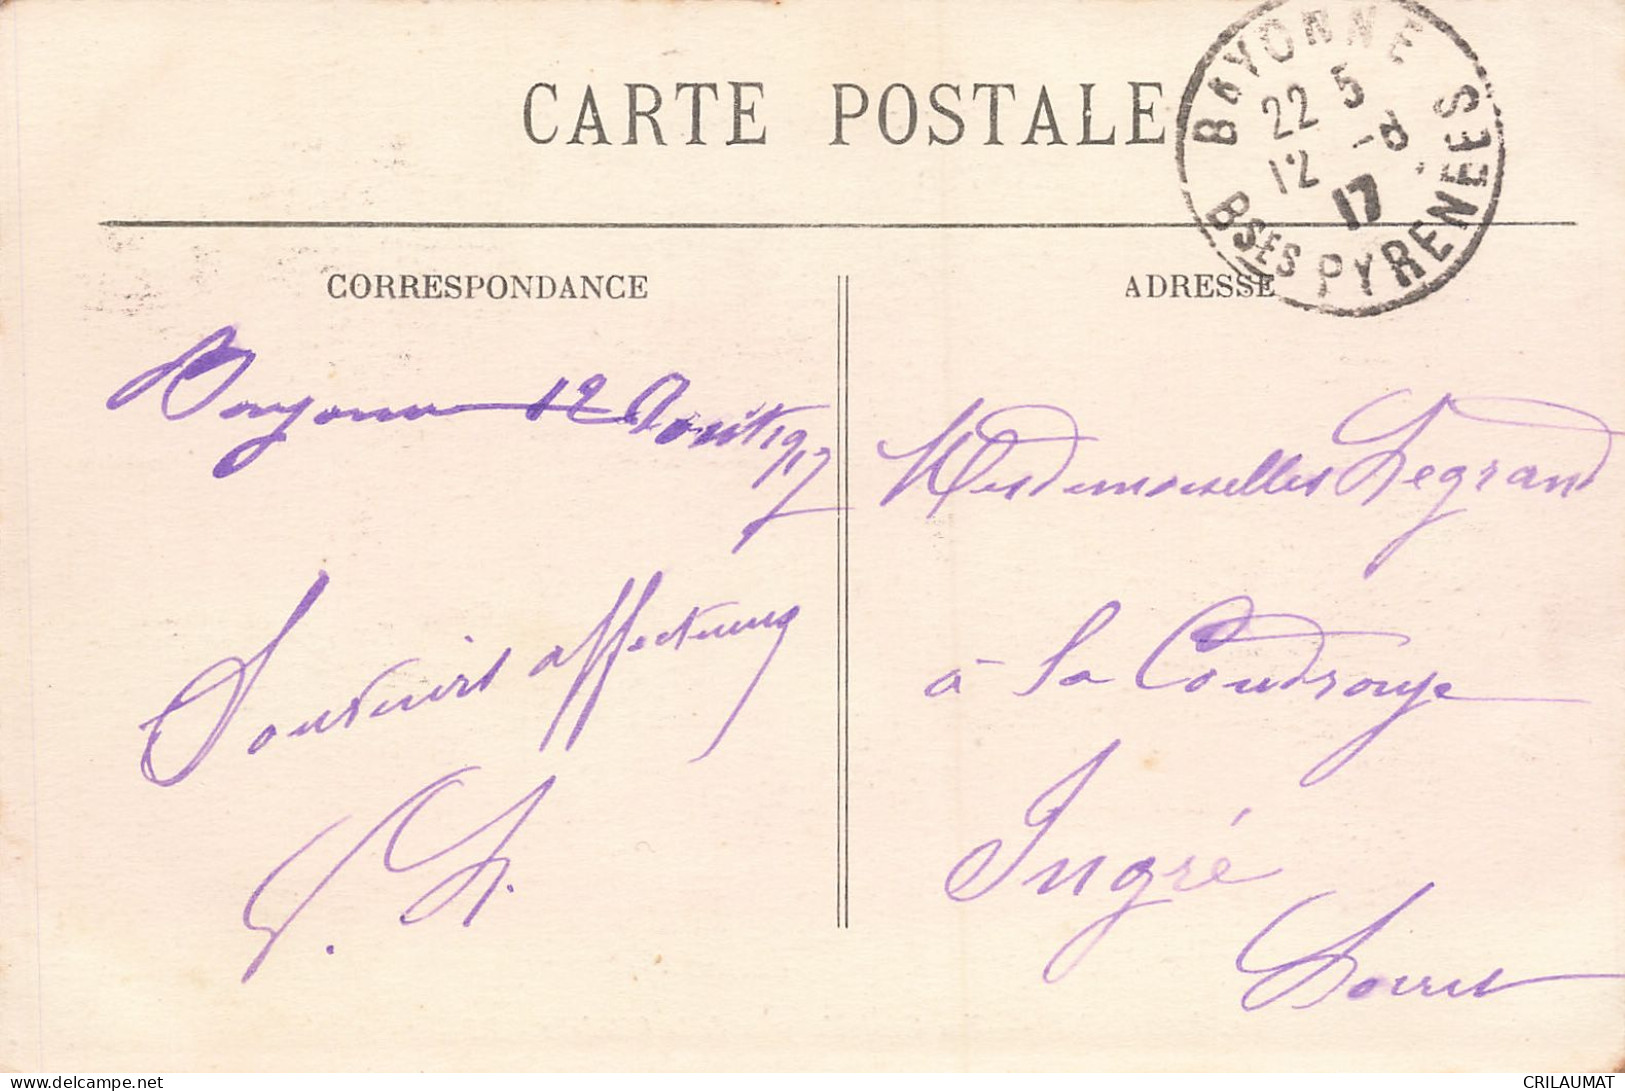 CARTE POSTALE
BAYONNE
22 5
12 -8
17
BSES PYRENEES
CORRESPONDANCE
Bayonne 12 Août 1917
Souvenirs affectueux
ADRESSE
Mesdemoiselles Legrand
à La Coudraye
Ingré
Loiret
www.delcampe.net
CRILAUMAT